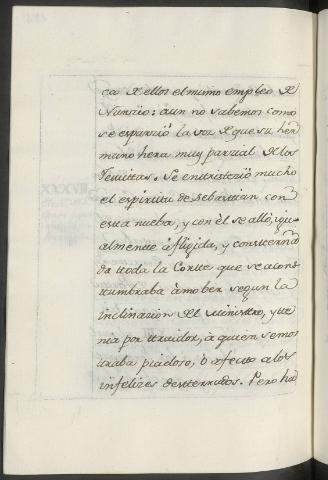 ca de ellos el mismo empleo de
Nuncio: aun no sabemos como
se esparció la voz de que su her
mano hera muy parcial de los
Jesuitas. Se entristeció mucho
el espiritu de Sebastian con
esta nueba, y con èl se alló, igu
almente afligida, y consterna
da toda la Cortte que se acos
tumbraba àmober segun la
inclinacion del Ministro, y te
nia por traidor, à quien se mos
traba piadoso, ò afecto a los
infelizes desterrados. Pero